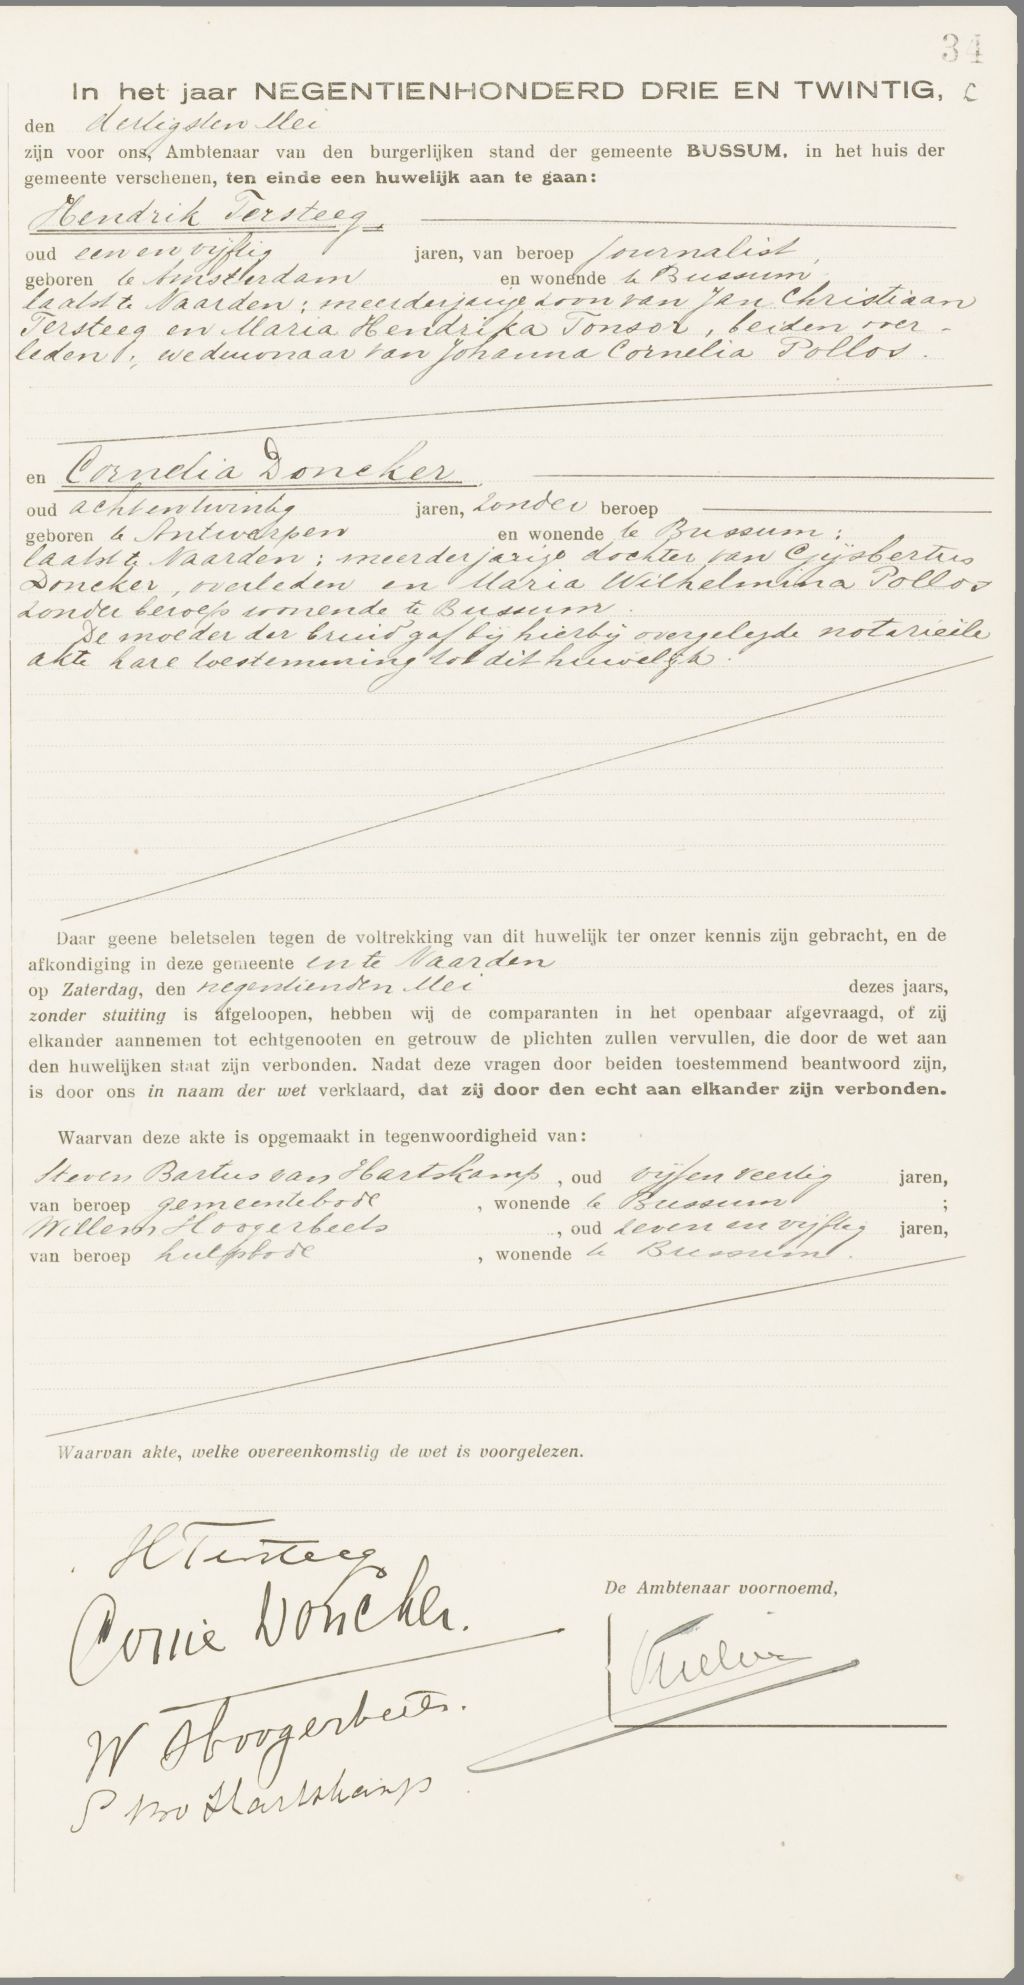 34
In het jaar NEGENTIENHONDERD DRIE EN TWINTIG, C
den dertigsten Mei
zijn voor ons, Ambtenaar van den burgerlijken stand der gemeente BUSSUM, in het huis der
gemeente verschenen, ten einde een huwelijk aan te gaan:
Hendrik Tersteeg,
oud een en vijftig jaren, van beroep journalist,
geboren te Amsterdam en wonende te Bussum
laatst te Naarden; meerderjarige zoon van Jan Christiaan
Tersteeg en Maria Hendrika Tonsor, beiden over-
leden; weduwnaar van Johanna Cornelia Pollos.
en Cornelia Doncker
oud acht en twintig jaren, zonder beroep
geboren te Antwerpen en wonende te Bussum;
laatst te Naarden; meerderjarige dochter van Gijsbertus
Doncker, overleden en Maria Wilhelmina Pollos
zonder beroep wonende te Bussum.
De moeder der bruid gaf bij hierbij overgelegde notarieële
akte hare toestemming tot dit huwelijk.
Daar geene beletselen tegen de voltrekking van dit huwelijk ter onzer kennis zijn gebracht, en de
afkondiging in deze gemeente en te Naarden
op Zaterdag, den negentienden Mei dezes jaars,
zonder stuiting is afgeloopen, hebben wij de comparanten in het openbaar afgevraagd, of zij
elkander aannemen tot echtgenooten en getrouw de plichten zullen vervullen, die door de wet aan
den huwelijken staat zijn verbonden. Nadat deze vragen door beiden toestemmend beantwoord zijn,
is door ons in naam der wet verklaard, dat zij door den echt aan elkander zijn verbonden.
Waarvan deze akte is opgemaakt in tegenwoordigheid van:
Steven Bartus van Hartskamp, oud vijf en veertig jaren,
van beroep gemeentebode, wonende te Bussum;
Willem Hoogerbeets, oud zeven en vijftig jaren,
van beroep hulpbode, wonende te Bussum.
Waarvan akte, welke overeenkomstig de wet is voorgelezen.
H Tersteeg
De Ambtenaar voornoemd,
Corrie Doncker.
W Hoogerbeets.
Hartskamp